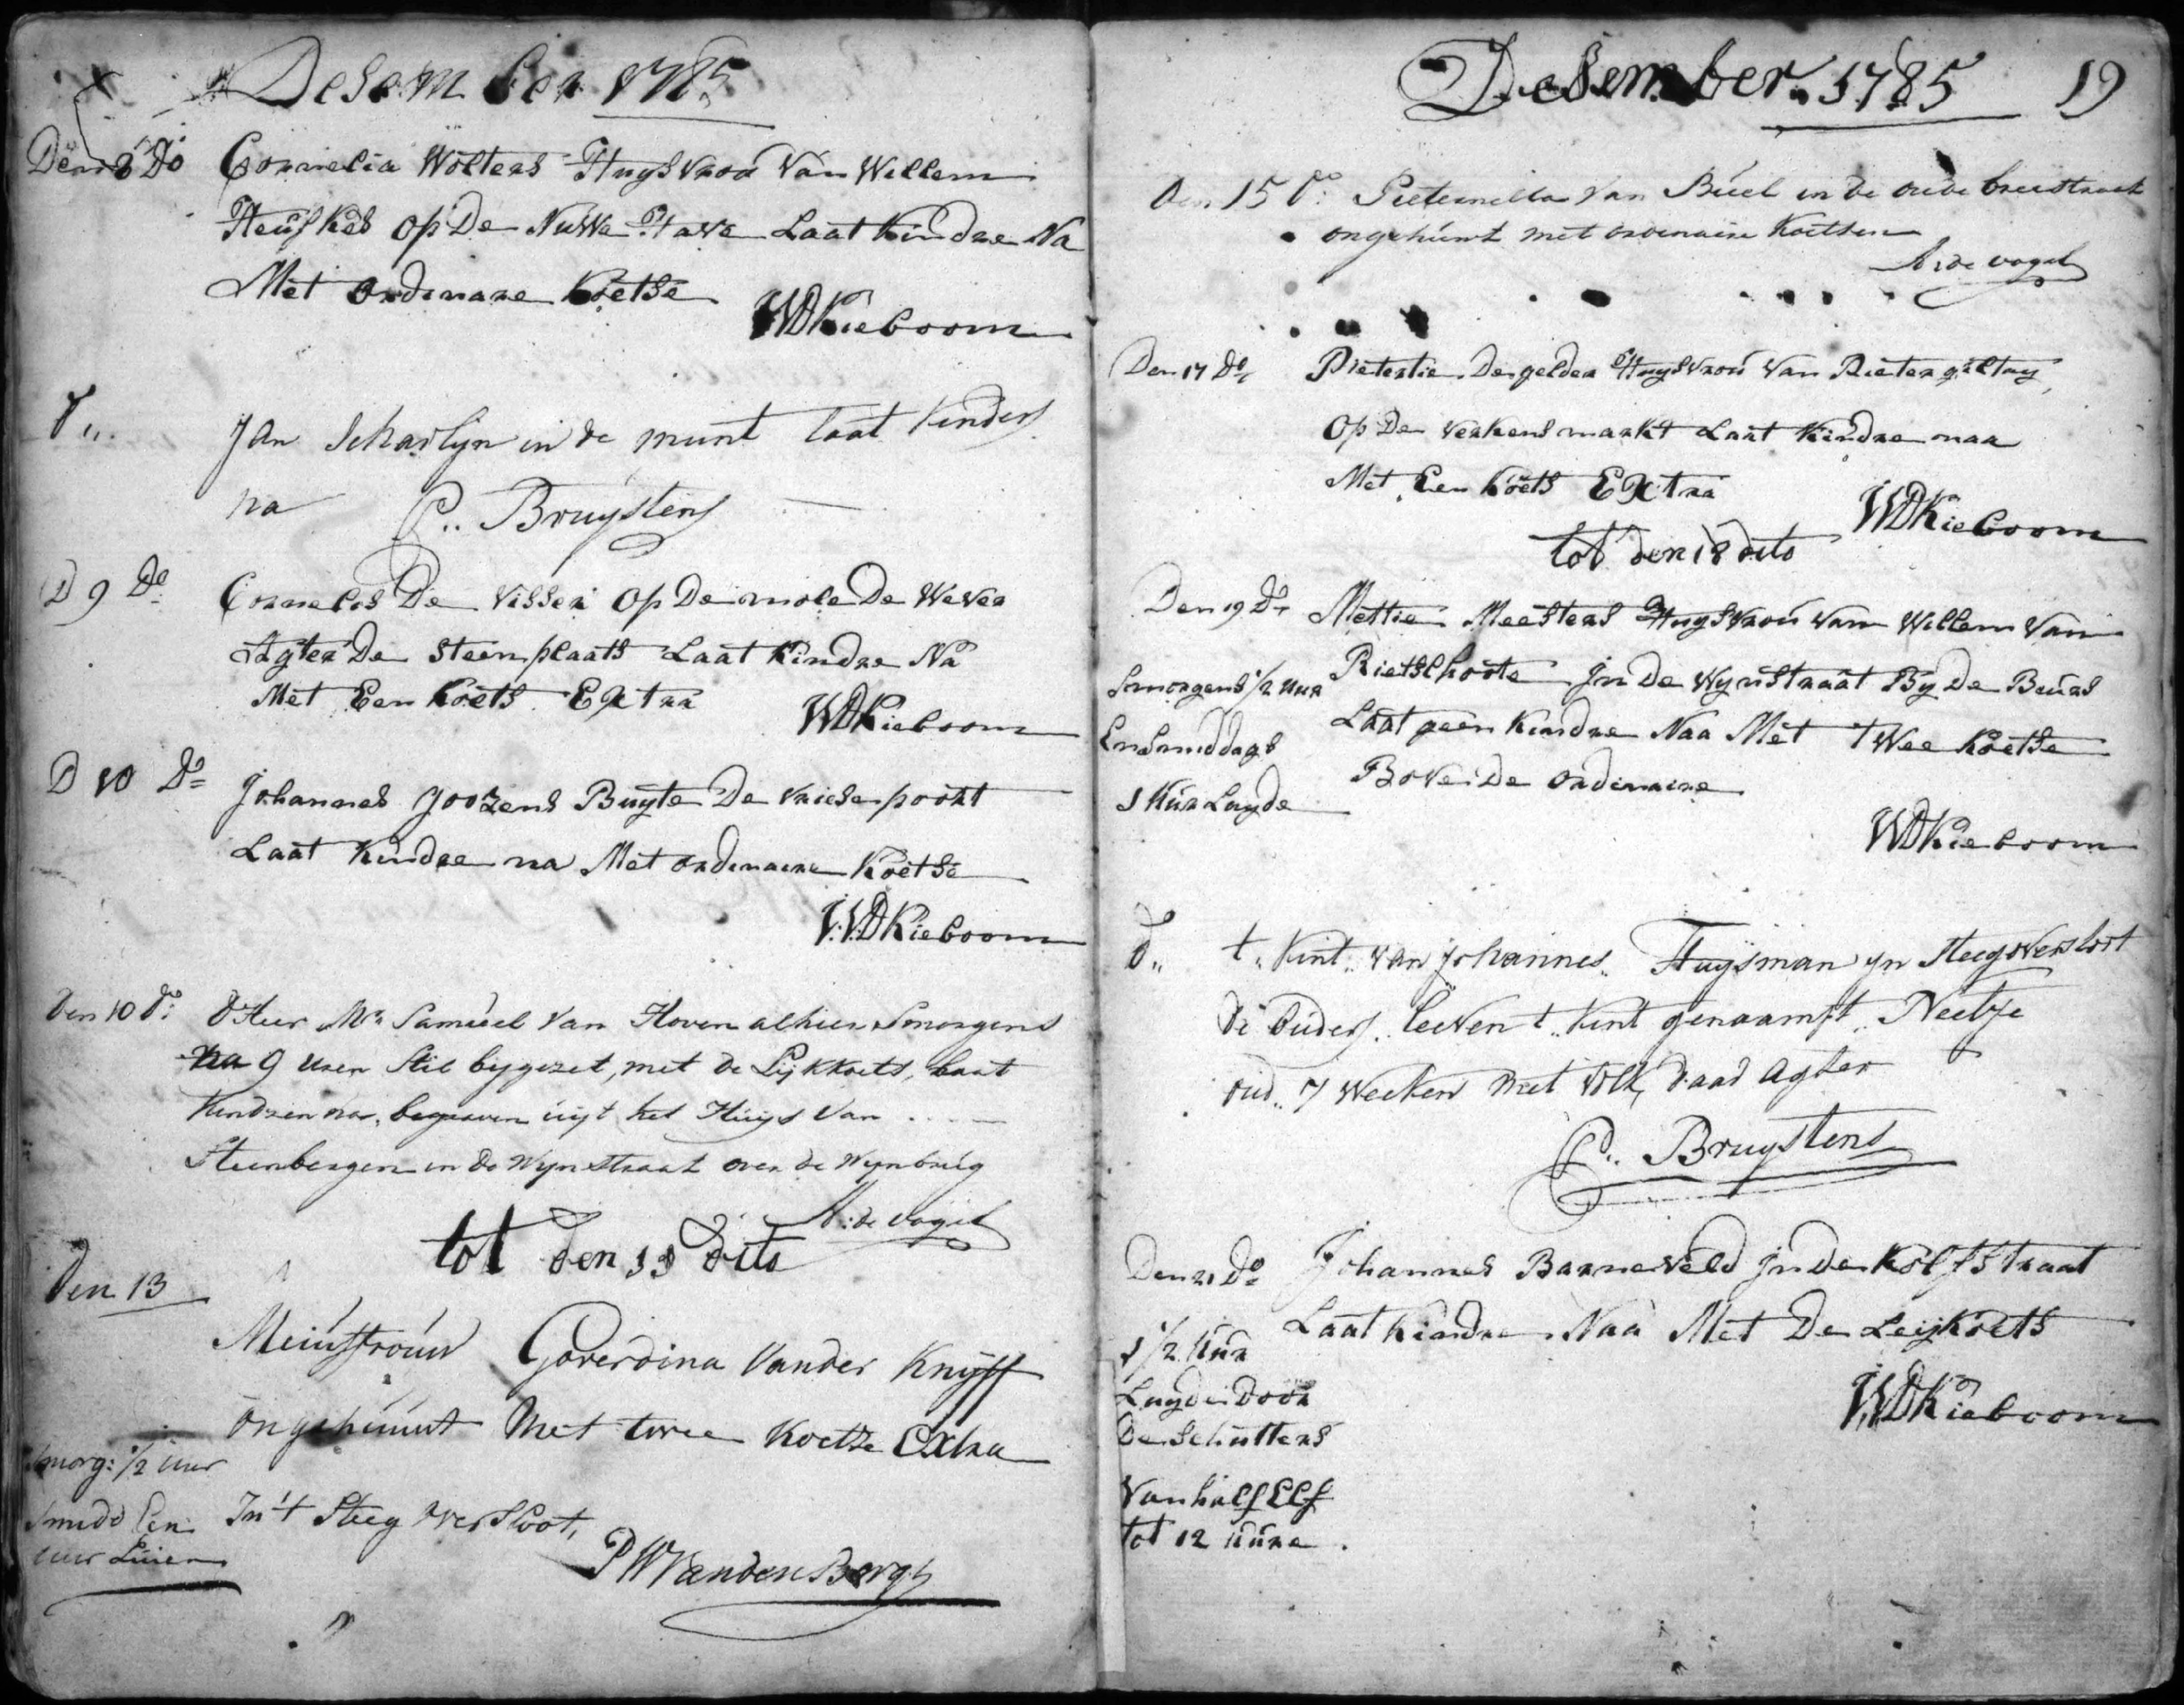 Desember 1785
Den 8 Do Cornelia Wolters Huysvrou Van Willem
Heuskes op De Nuwe Have Laat Kindre Na
Met ordenare Koetse
WDKieboom
D„ Jan Scharlijn in de munt laat kinders
na P„ Bruijstens
D 9 Do Cornelos De Visser op De mole De Wever
Agter De Steenplaats Laat Kindre Na
Met Een Koets Extra
WDKieboom
D 10 Do Johannes Joozens Buyte De Vriesepoort
Laat Kindre na Met ordenaere Koetse
WDKieboom
Den 10 do: d'Heer Mr. Samuel Van Hoven alhier Smorgens
9 uren Stil bijgezet, met de Lijkkoets, laat
Kindren na, begraven uijt het Huijs Van . . .
Steenbergen in de Wynstraat over de Wynbrug
A: de Vogel
tot den 11 dito
Den 13
Meiuffrouw Goverdina Vander Knijff
ongehuwt Met twee Koetze Extra
Smorg: 1/2 uur
Smidd Een In 't Steeg over Sloot,
uur Luien
PWVandenBergh
Desember 1785 19
Den 15 do: Pieternella Van Buel in de oude breestraat
ongehuwt met ordenaire Koetsen
A: de Vogel
Den 17 Do Pietertie De gelder Huysvrou Van Pieter giltay
Op De Verkensmarkt Laat Kindre naa
Met Een Koets Extra
WDKieboom
tot den 18 dito
Den 19 Do Mettie Meesters Huysvrou Van Willem Van
Smorgens 1/2 uur Rietschoote In De Wynstraat By De Beurs
En Smiddags Laat geen Kindre Naa Met Twee Koetse
1 uur Luyde Bove De ordinaire
WDKieboom
D„ t„ Kint„ van Johannes„ Huijsman yn Steegoversloot
de ouders„ leeven t„ kint genaamt„ Neeltje
oud„ 7 Weeken met Volk, d'aad Agter
P„ Bruystens
Den 21 Do Johannes Barneveld In De Kolfstraat
1/2 Uur Laat Kindre Naa Met De Leijkoets
Luyde Door
De Schutters
WDKieboom
Van half Elf
tot 12 Uure